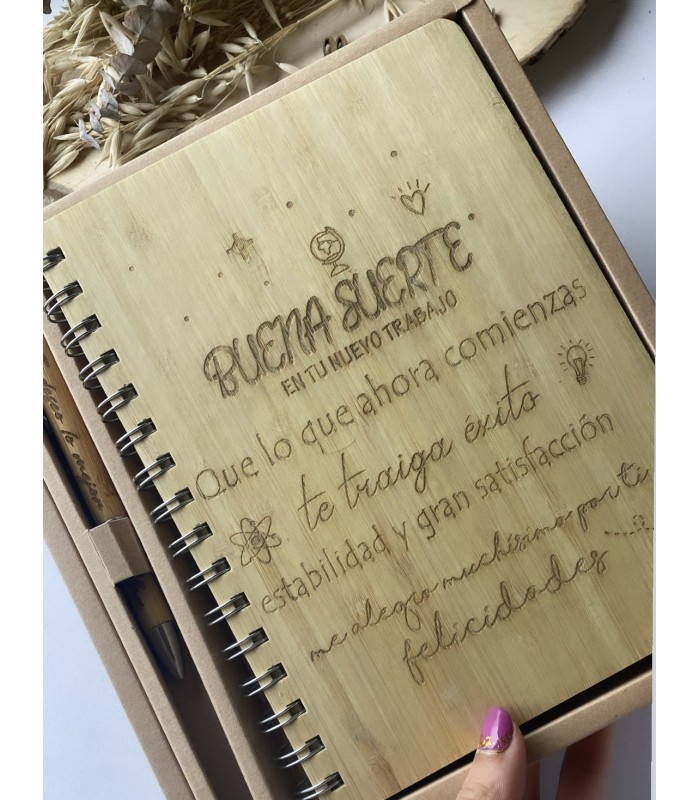 BUENA SUERTE
EN TU NUEVO TRABAJO
Que lo que ahora comienzas
te traiga éxito
estabilidad y gran satisfacción
me alegro muchísimo por ti
felicidades
deseo lo mejor